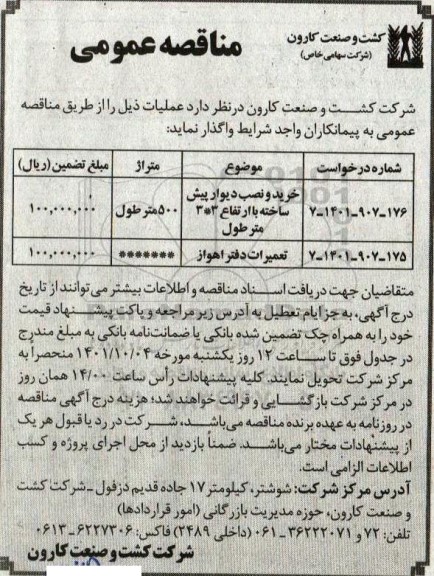 کشت و صنعت کارون
(شرکت سهامی خاص)
مناقصه عمومی
شرکت کشت و صنعت کارون درنظر دارد عملیات ذیل را از طریق مناقصه
عمومی به پیمانکاران واجد شرایط واگذار نماید:
شماره درخواست موضوع متراژ مبلغ تضمین (ریال)
۷-۱۴۰۱-۹۰۷-۱۷۶ خرید و نصب دیوار پیش ساخته با ارتفاع ۳*۳ متر طول ۵۰۰ متر طول ۱۰۰,۰۰۰,۰۰۰
۷-۱۴۰۱-۹۰۷-۱۷۵ تعمیرات دفتر اهواز ******* ۱۰۰,۰۰۰,۰۰۰
متقاضیان جهت دریافت اسناد مناقصه و اطلاعات بیشتر می‌توانند از تاریخ
درج آگهی، به جز ایام تعطیل به آدرس زیر مراجعه و پاکت پیشنهاد قیمت
خود را به همراه چک تضمین شده بانکی یا ضمانت‌نامه بانکی به مبلغ مندرج
در جدول فوق تا ساعت ۱۲ روز یکشنبه مورخه ۱۴۰۱/۱۰/۰۴ منحصراً به
مرکز شرکت تحویل نمایند. کلیه پیشنهادات رأس ساعت ۱۴/۰۰ همان روز
در مرکز شرکت بازگشایی و قرائت خواهند شد؛ هزینه درج آگهی مناقصه
در روزنامه به عهده برنده مناقصه می‌باشد، شرکت در رد یا قبول هر یک
از پیشنهادات مختار می‌باشد. ضمناً بازدید از محل اجرای پروژه و کسب
اطلاعات الزامی است.
آدرس مرکز شرکت: شوشتر، کیلومتر ۱۷ جاده قدیم دزفول ـ شرکت کشت
و صنعت کارون، حوزه مدیریت بازرگانی (امور قراردادها)
تلفن: ۷۲ و ۳۶۲۲۲۰۷۱-۰۶۱ (داخلی ۲۴۸۹) فاکس: ۶۲۲۷۳۰۶-۰۶۱۳
شرکت کشت و صنعت کارون